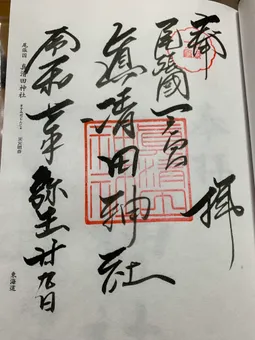 奉拝
尾張國一宮
眞清田神社
令和 年弥生廿九日
尾張国 真清田神社
東海道